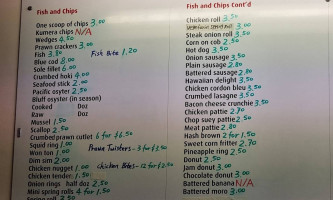 Fish and Chips
One scoop of chips 3.00
Kumera chips N/A
Wedges 4.50
Prawn crackers 3.00
Fish 3.80 Fish Bite 1.20
Blue cod 8.00
Sole fillet 6.00
Crumbed hoki 4.00
Seafood stick 2.00
Pacific oyster 2.50
Bluff oyster (in season)
Cooked Doz
Raw Doz
Mussel 1.50
Scallop 2.50
Crumbed prawn cutlet 6 for $6.50
Squid ring 1.00 Prawn Twisters - 3 for $3.50
Won ton 1.00
Dim sim 2.00
Chicken nugget 1.00 Chicken Bites - 12 for $2.50
Chicken tender 1.50
Onion rings half doz 2.50
Mini spring rolls 4 for 1.50
Spring roll
Fish and Chips Cont'd
Chicken roll 3.50
Steak onion roll 3.50
Corn on cob 2.50
Hot dog 3.50
Onion sausage 3.50
Plain sausage 2.80
Battered sausage 2.80
Hawaiian delight 3.50
Chicken cordon bleu 3.50
Crumbed lasagne 3.50
Bacon cheese crunchie 3.50
Chicken pattie 2.70
Chop suey pattie 2.50
Meat pattie 2.80
Hash brown 2 for 1.50
Sweet corn fritter 2.70
Pineapple ring 2.50
Donut 2.50
Jam donut 3.00
Chocolate donut 3.00
Battered banana N/A
Battered moro 3.00